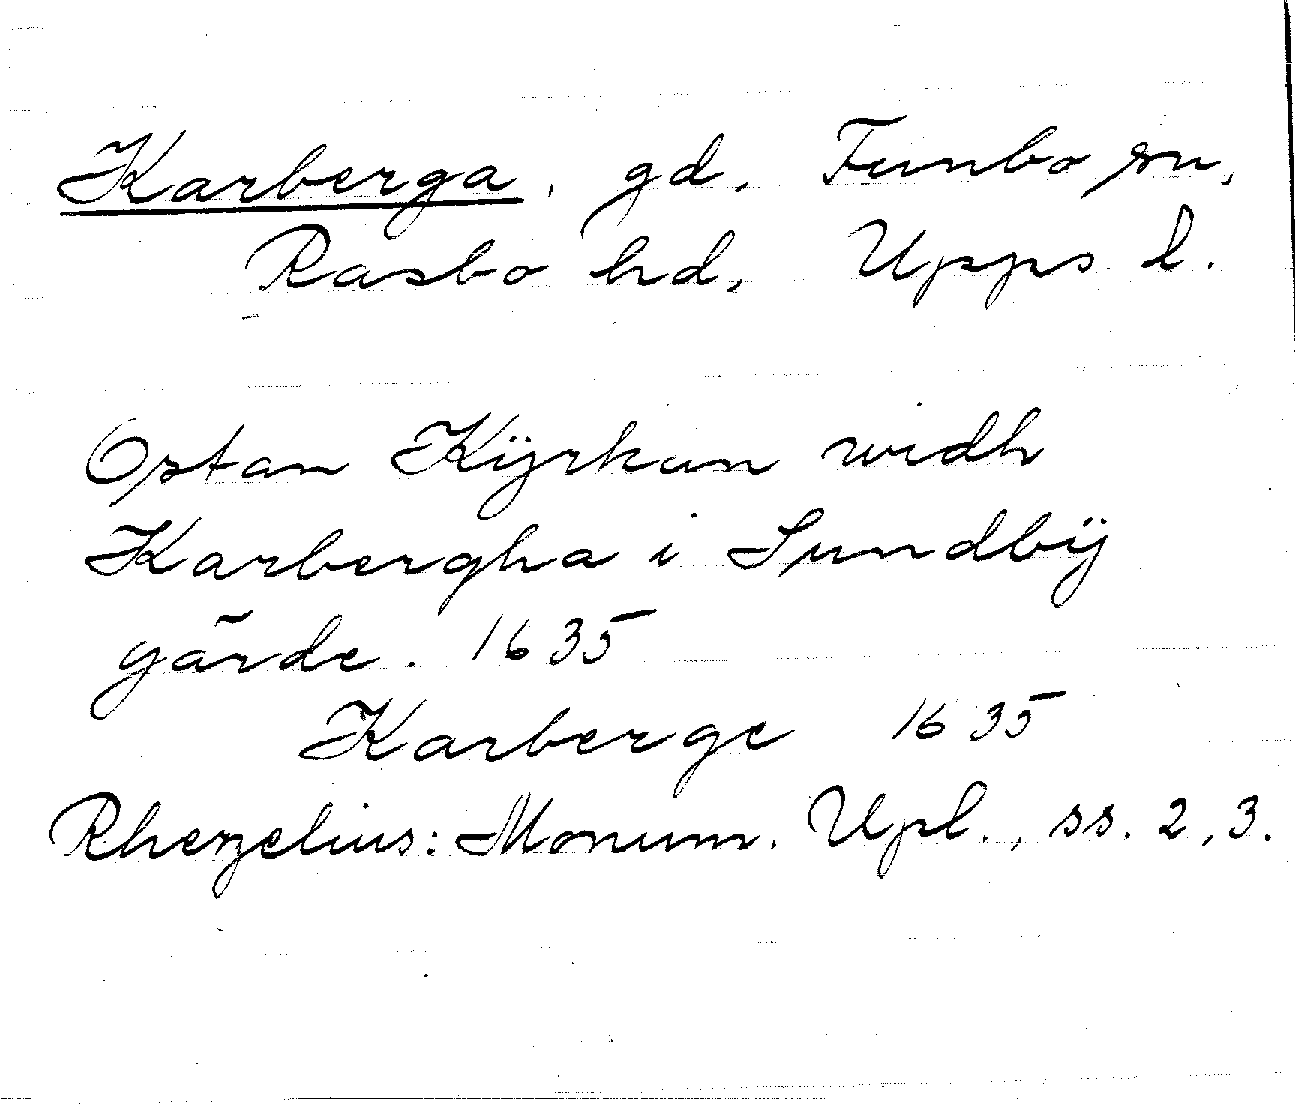 Karberga, gd, Funbo sn,
Rasbo hd, Upps l.
Ostan Kÿrkan widh
Karbergha i Sundbÿ
gärde. 1635
Karberge 1635
Rhezelius: Monum. Upl., ss. 2, 3.